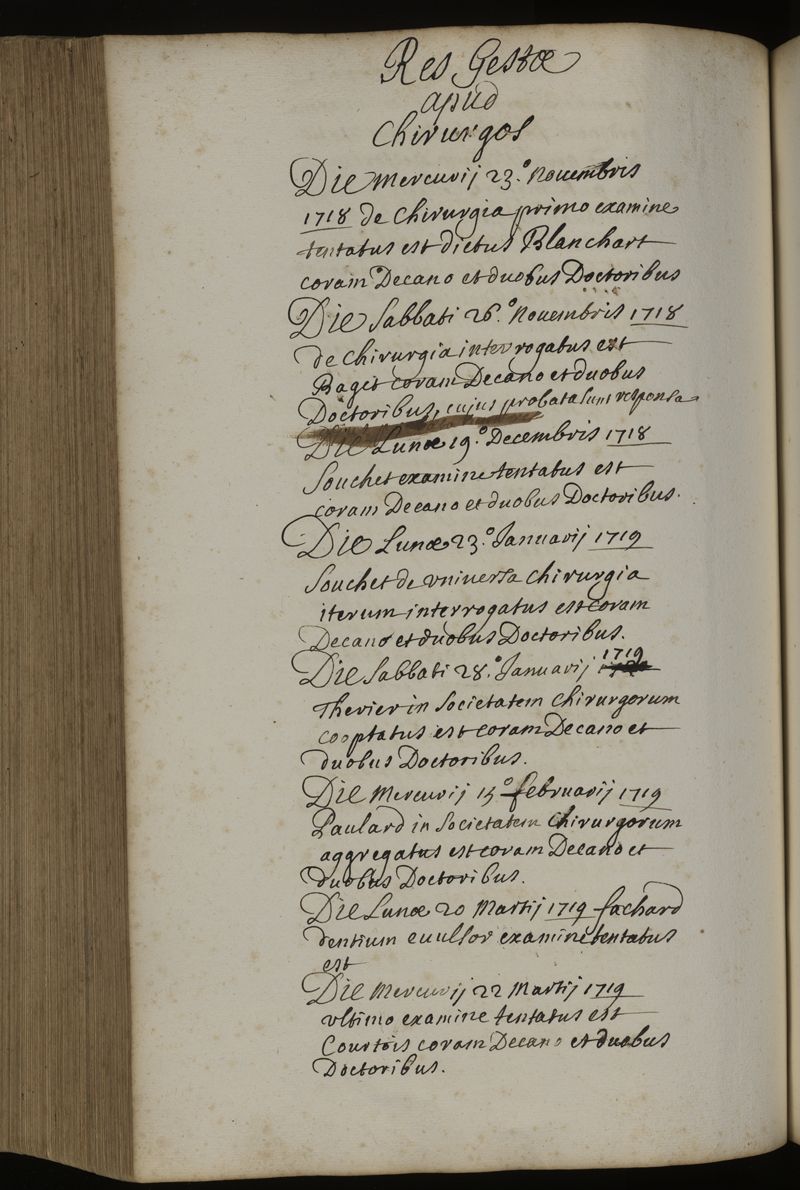 Res Gestæ
apud
Chirurgos
Die Mercurij 23.° Nouembris
1718 de Chirurgia primo examine
tentatus est dictus Blanchart
coram Decano et duobus Doctoribus
Die Sabbati 26.° Nouembris 1718
de Chirurgia interrogatus est
Raget coram Decano et duobus
Doctoribus, cujus probata sunt responsa
Die Lunæ 19.° Decembris 1718
Souchet examine tentatus est
coram Decano et duobus Doctoribus.
Die Lunæ 23.° Januarij 1719
Souchet de vniuersa Chirurgia
iterum interrogatus est coram
Decano et duobus Doctoribus.
Die Sabbati 28.° Januarij 1719
Thevier in Societatem Chirurgorum
cooptatus est coram Decano et
duobus Doctoribus.
Die Mercurij 15° februarij 1719
Paulard in Societatem Chirurgorum
aggregatus est coram Decano et
duobus Doctoribus.
Die Lunæ 20 Martij 1719 fachard
dentium euulsor examine tentatus
est
Die Mercurij 22 Martij 1719
vltimo examine tentatus est
Courtois coram Decano et duobus
Doctoribus.